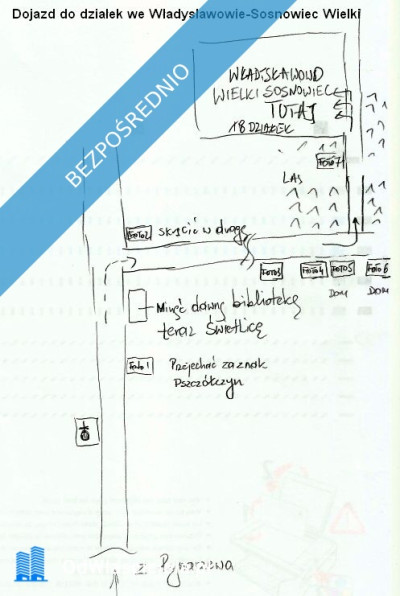 Dojazd do działek we Władysławowie-Sosnowiec Wielki
BEZPOŚREDNIO
WŁADYSŁAWOWO
WIELKI SOSNOWIEC
TUTAJ
18 DZIAŁEK
FOTO 7
LAS
FOTO 2
SKRĘCIĆ W drogę
FOTO 3
FOTO 4
FOTO 5
FOTO 6
DOM
DOM
Minąć dawną bibliotekę
teraz świetlicę
Foto 1
Przejechać za znak
Pszczółczyn
z